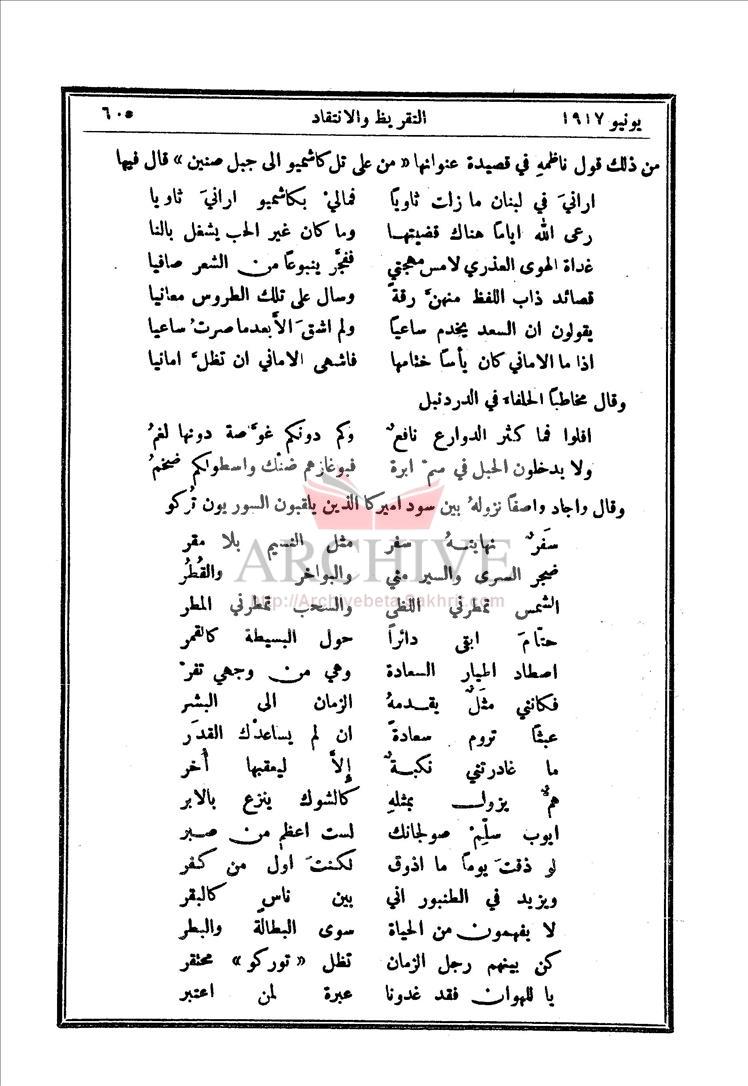 يونيو ١٩١٧ التقريظ والانتقاد ٦٠٥
من ذلك قول ناظمهِ في قصيدة عنوانها « من على تل كاشميو الى جبل صنين » قال فيها
ارانيَ في لبنان ما زلت ثاويًا فمالي بكاشميو ارانيَ ثاويا
رعى الله اياماً هناك قضيتها وما كان غير الحب يشغل بالنا
غداة الهوى العذري لامس مهجتي ففجَّر ينبوعاً من الشعر صافيا
قصائد ذاب اللفظ منهنَّ رقةً وسال على تلك الطروس معانيا
يقولون ان السعد يخدم ساعياً ولم اشقَ الاَّ بعدما صرتُ ساعيا
اذا ما الاماني كان يأساً ختامها فاشهى الاماني ان تظلَّ امانيا
وقال مخاطباً الحلفاء في الدردنيل
اقلوا فما كثر الدوارع نافعٌ وكم دونكم غوَّاصة دونها لغمُ
ولا يدخلون الحبل في سمّ ابرة فبوغازهم ضنك واسطولكم ضخمُ
وقال واجاد واصفاً نزولهُ بين سود اميركا الذين يلقبون السوريون تُركو
ARCHIVE
http://Archivebeta.Sakhrit.com
سَفرٌ نهايتهُ سفر مثل النسيم بلا مقر
ضجر السرى والسير مني والبواخر والقُطُر
الشمس تمطرني اللظى والسحب تمطرني المطر
حتّامَ ابقى دائراً حول البسيطة كالقمر
اصطاد اطيار السعادة وهي من وجهي تفرّ
فكانني مثَلٌ يقدمهُ الزمان الى البشر
عبثًا تروم سعادةً ان لم يساعدْك القدَر
ما غادرتني نكبةٌ إلاَّ ليعقبها أُخر
همٌّ يزول بمثلهِ كالشوك ينزع بالابر
ايوب سلِّمْ صولجانك لست اعظم من صبر
لو ذقتَ يوماً ما اذوق لكنتَ اول من كفر
ويزيد في الطنبور اني بين ناس كالبقر
لا يفهمون من الحياة سوى البطالة والبطر
كن بينهم رجل الزمان تظل « توركو » محتقر
يا للهوان فقد غدونا عبرة لمن اعتبر